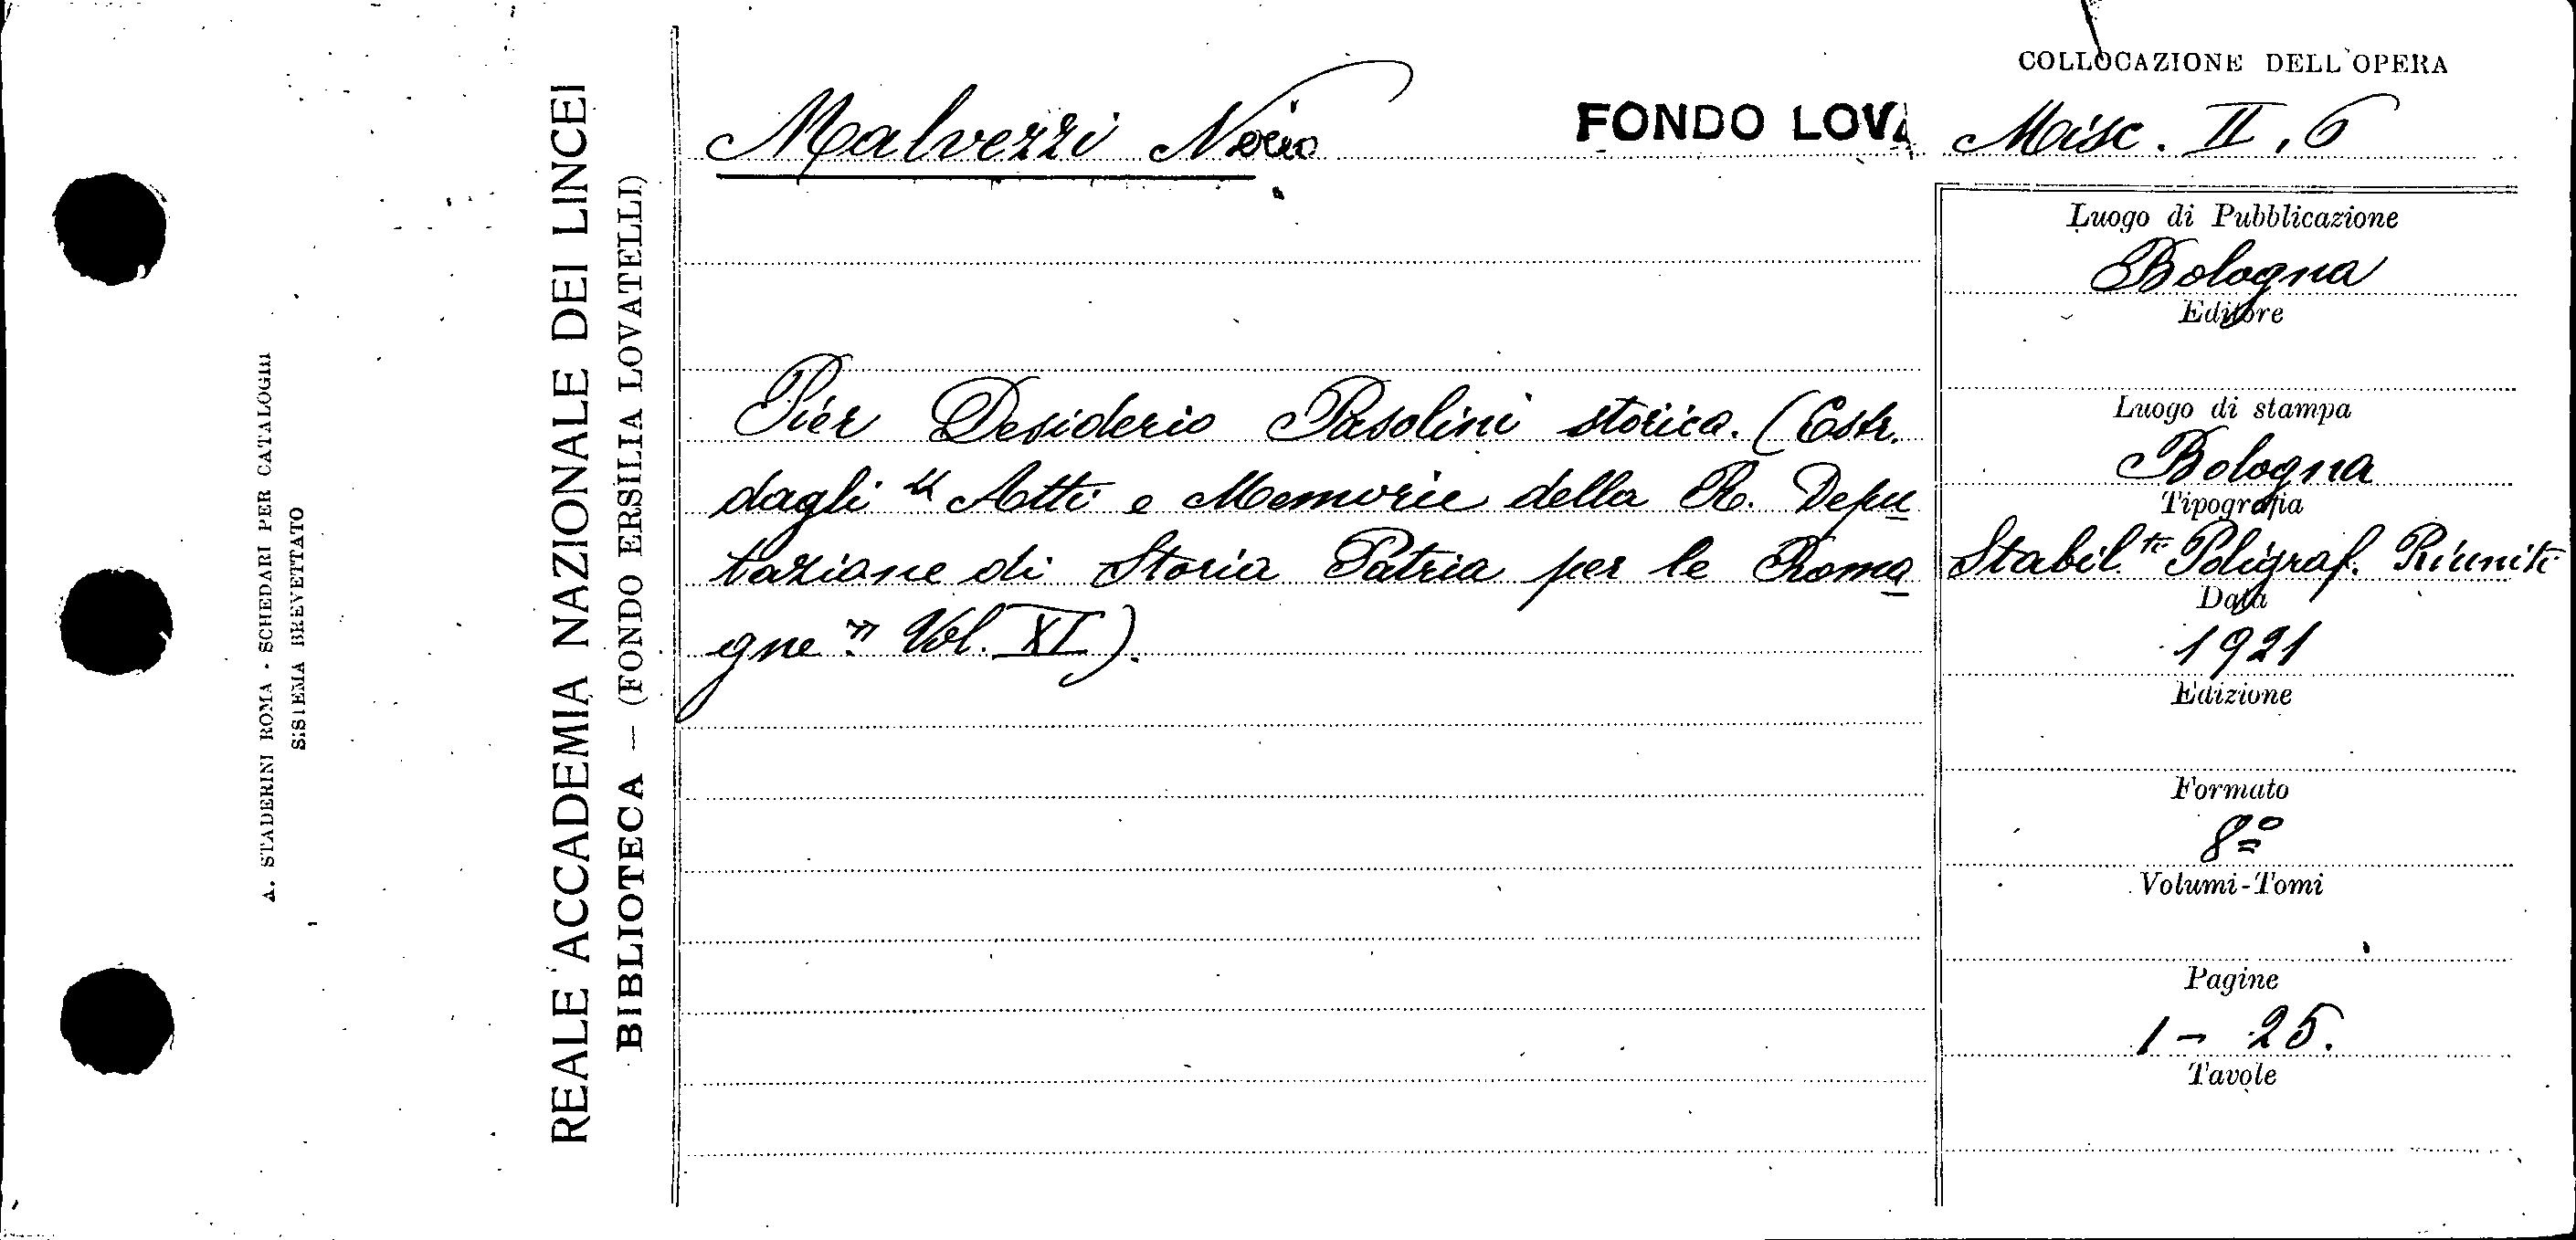 A. STADERINI ROMA - SCHEDARI PER CATALOGHI
SISTEMA BREVETTATO
REALE ACCADEMIA NAZIONALE DEI LINCEI
BIBLIOTECA — (FONDO ERSILIA LOVATELLI)
Malvezzi Nerio
FONDO LOVA
COLLOCAZIONE DELL'OPERA
Misc. II, 6
Pier Desiderio Pasolini storico. (Estr.
dagli "Atti e Memorie della R. Depu
tazione di Storia Patria per le Roma
gne" Vol. XI).
Luogo di Pubblicazione
Bologna
Editore
Luogo di stampa
Bologna
Tipografia
Stabil.ti Poligraf. Riuniti
Data
1921
Edizione
Formato
8º
Volumi-Tomi
Pagine
1 - 25.
Tavole